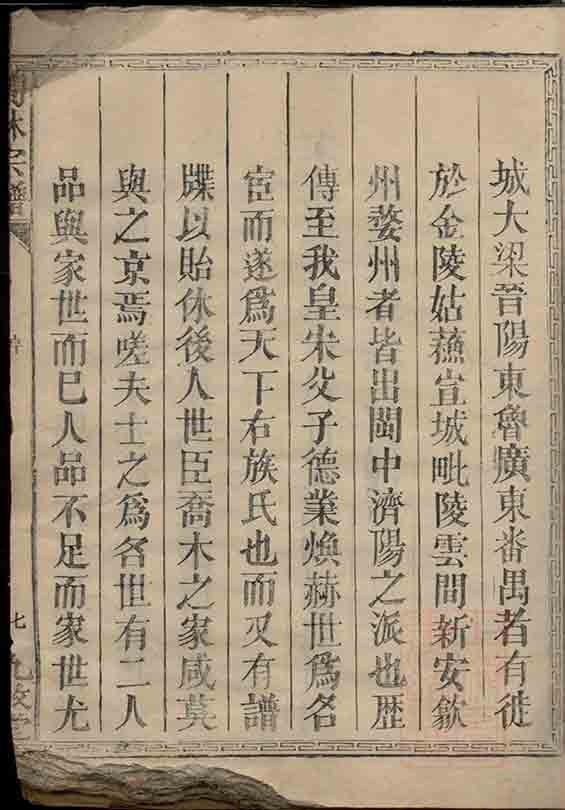 城大梁晉陽東魯廣東番禺者有徙
於金陵姑蘓宣城毗陵雲間新安歙
州婺州者皆出閩中濟陽之派也歴
傳至我皇宋父子德業煥赫世爲名
宦而遂爲天下右族氏也而又有譜
牒以貽休後人世臣喬木之家咸莫
與之京焉嗟夫士之爲名世有二人
品與家世而已人品不足而家世尤
林宗譜
七